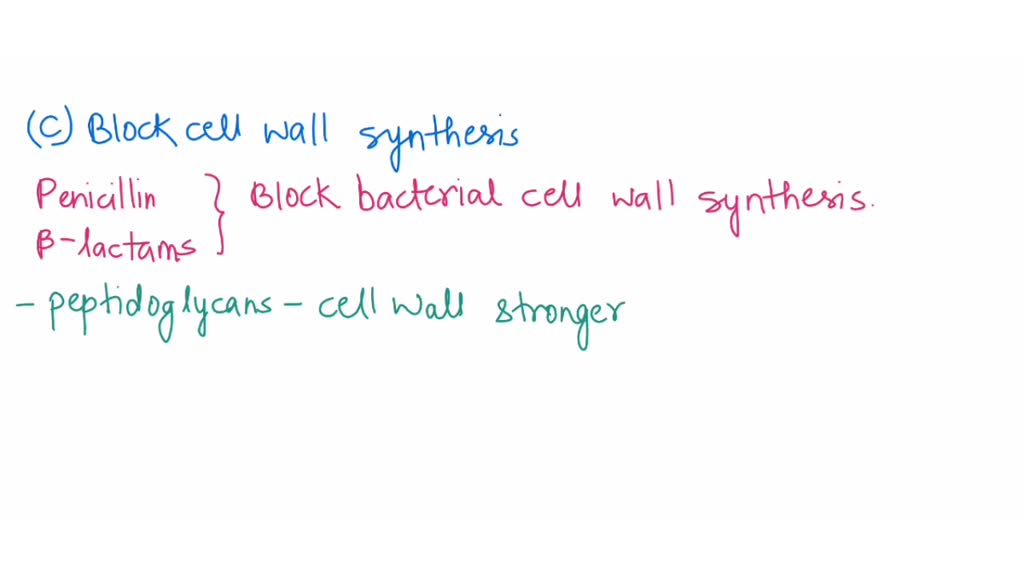 (C) Block cell wall synthesis
Penicillin } Block bacterial cell wall synthesis.
β-lactams
- peptidoglycans - cell wall stronger